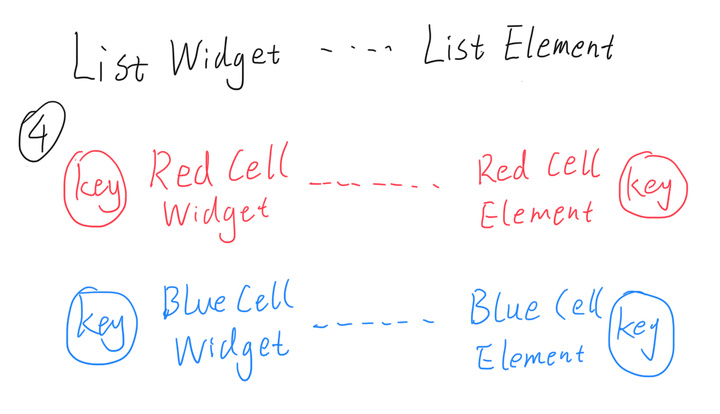 List Widget ----- List Element
4
key Red Cell Widget ------- Red Cell Element key
key Blue Cell Widget ------ Blue Cell Element key